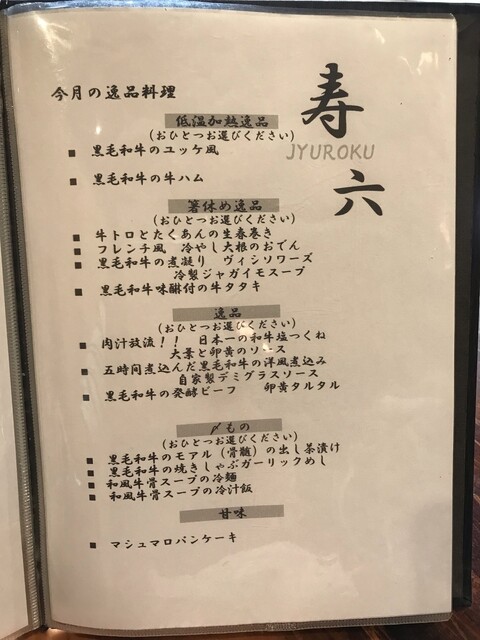 寿六
JYUROKU
今月の逸品料理
低温加熱逸品
(おひとつお選びください)
■ 黒毛和牛のユッケ風
■ 黒毛和牛の牛ハム
箸休め逸品
(おひとつお選びください)
■ 牛トロとたくあんの生春巻き
■ フレンチ風 冷やし大根のおでん
■ 黒毛和牛の煮凝り ヴィシソワーズ
冷製ジャガイモスープ
■ 黒毛和牛味醂付の牛タタキ
逸品
(おひとつお選びください)
■ 肉汁放流!! 日本一の和牛塩つくね
大葉と卵黄のソース
■ 五時間煮込んだ黒毛和牛の洋風煮込み
自家製デミグラスソース
■ 黒毛和牛の発酵ビーフ 卵黄タルタル
〆もの
(おひとつお選びください)
■ 黒毛和牛のモアル(骨髄)の出し茶漬け
■ 黒毛和牛の焼きしゃぶガーリックめし
■ 和風牛骨スープの冷麺
■ 和風牛骨スープの冷汁飯
甘味
■ マシュマロパンケーキ